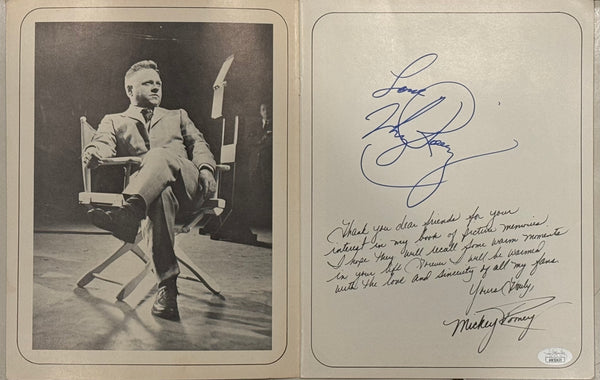 Love
Mickey Rooney
Thank you dear friends for your
interest in my book of picture memories
I hope they will recall some warm moments
in your life. Forever I will be warmed
with the love and sincerity of all my fans.
Yours Truly,
Mickey Rooney
JSA